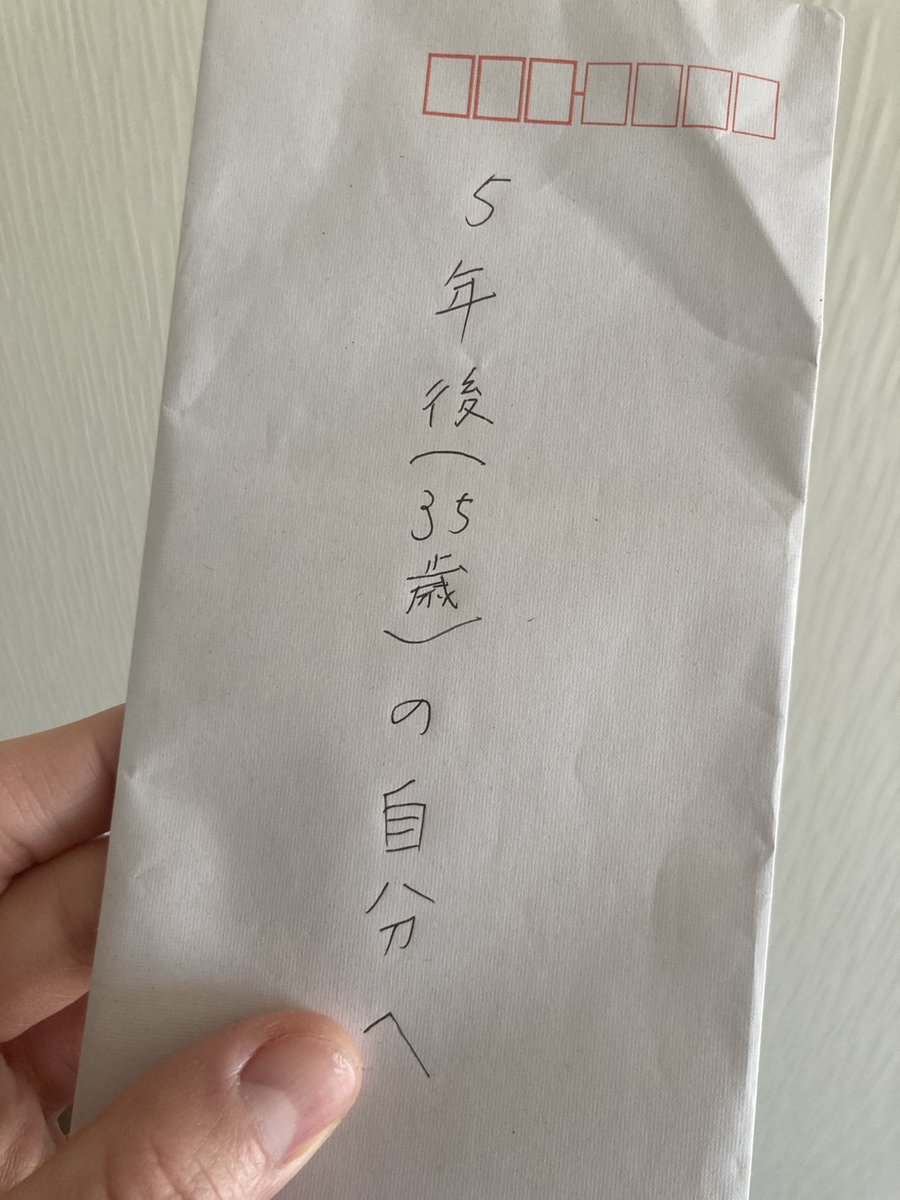 5年後(35歳)の自分へ